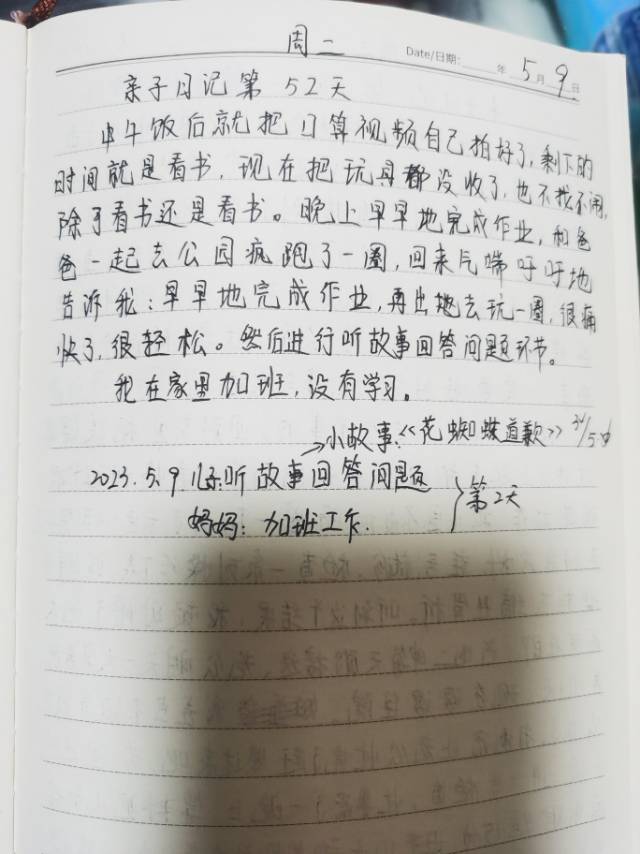 周二
Date/日期: 年 5 月 9 日
亲子日记第 52天
中午饭后就把口算视频自己拍好了,剩下的
时间就是看书,现在把玩具都没收了,也不找不闹,
除了看书还是看书。晚上早早地完成作业,和爸
爸一起去公园疯跑了一圈,回来气喘吁吁地
告诉我:早早地完成作业,再出地去玩一圈,很痛
快了,很轻松。然后进行听故事回答问题环节。
我在家里加班,没有学习。
→小故事:《花蜘蛛道歉》
2023.5.9.儿子:听故事回答问题
妈妈:加班工作. }第2天